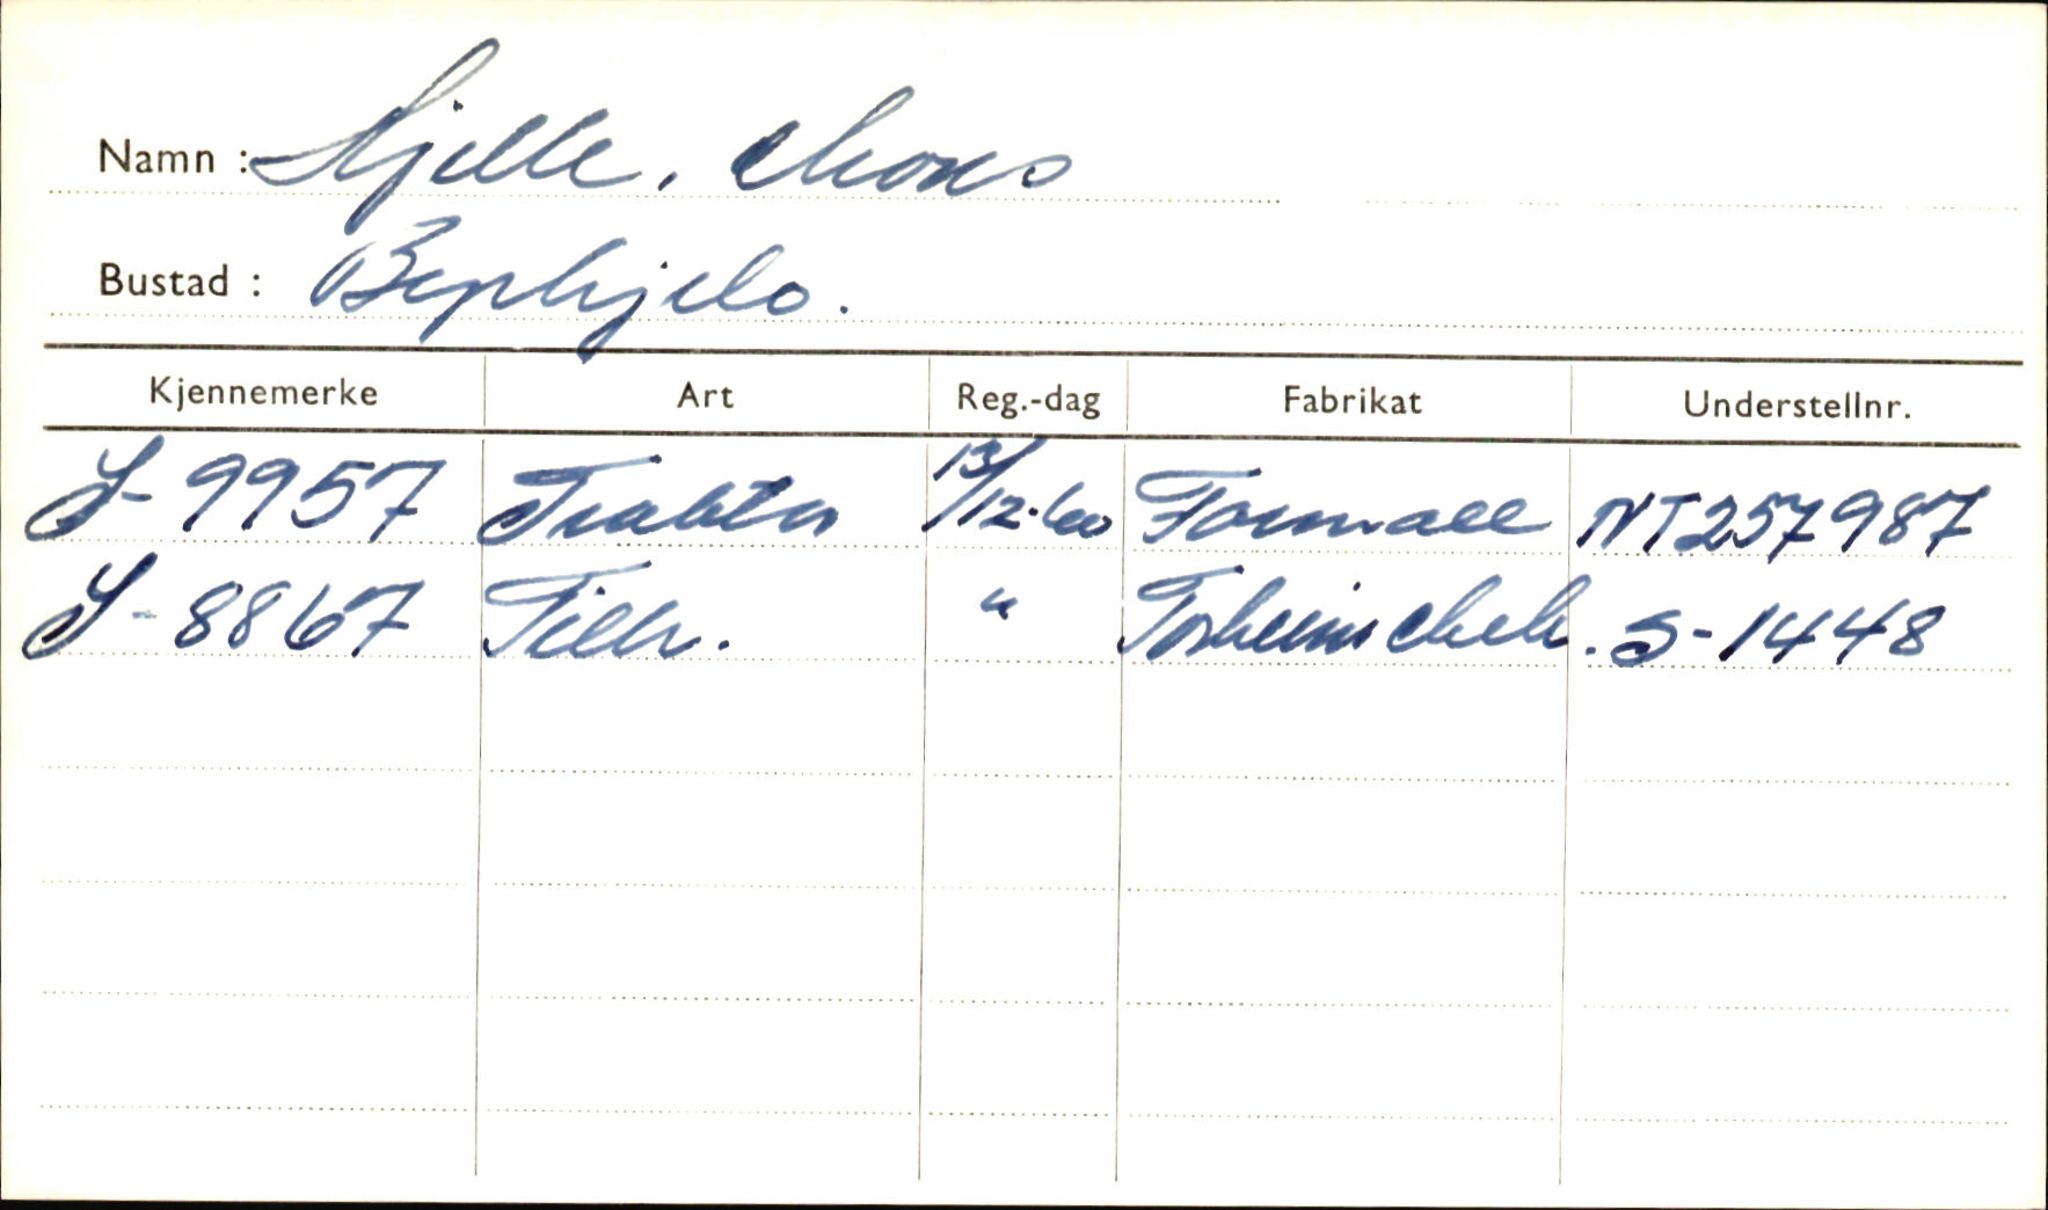 Namn : Skjelle, Mons
Bustad : Byrkjelo.
Kjennemerke Art Reg.-dag Fabrikat Understellnr.
S-9957 Traktor 13/12-60 Farmall NT257987
S-8867 Tilh. " Torheim Mek. S-1448